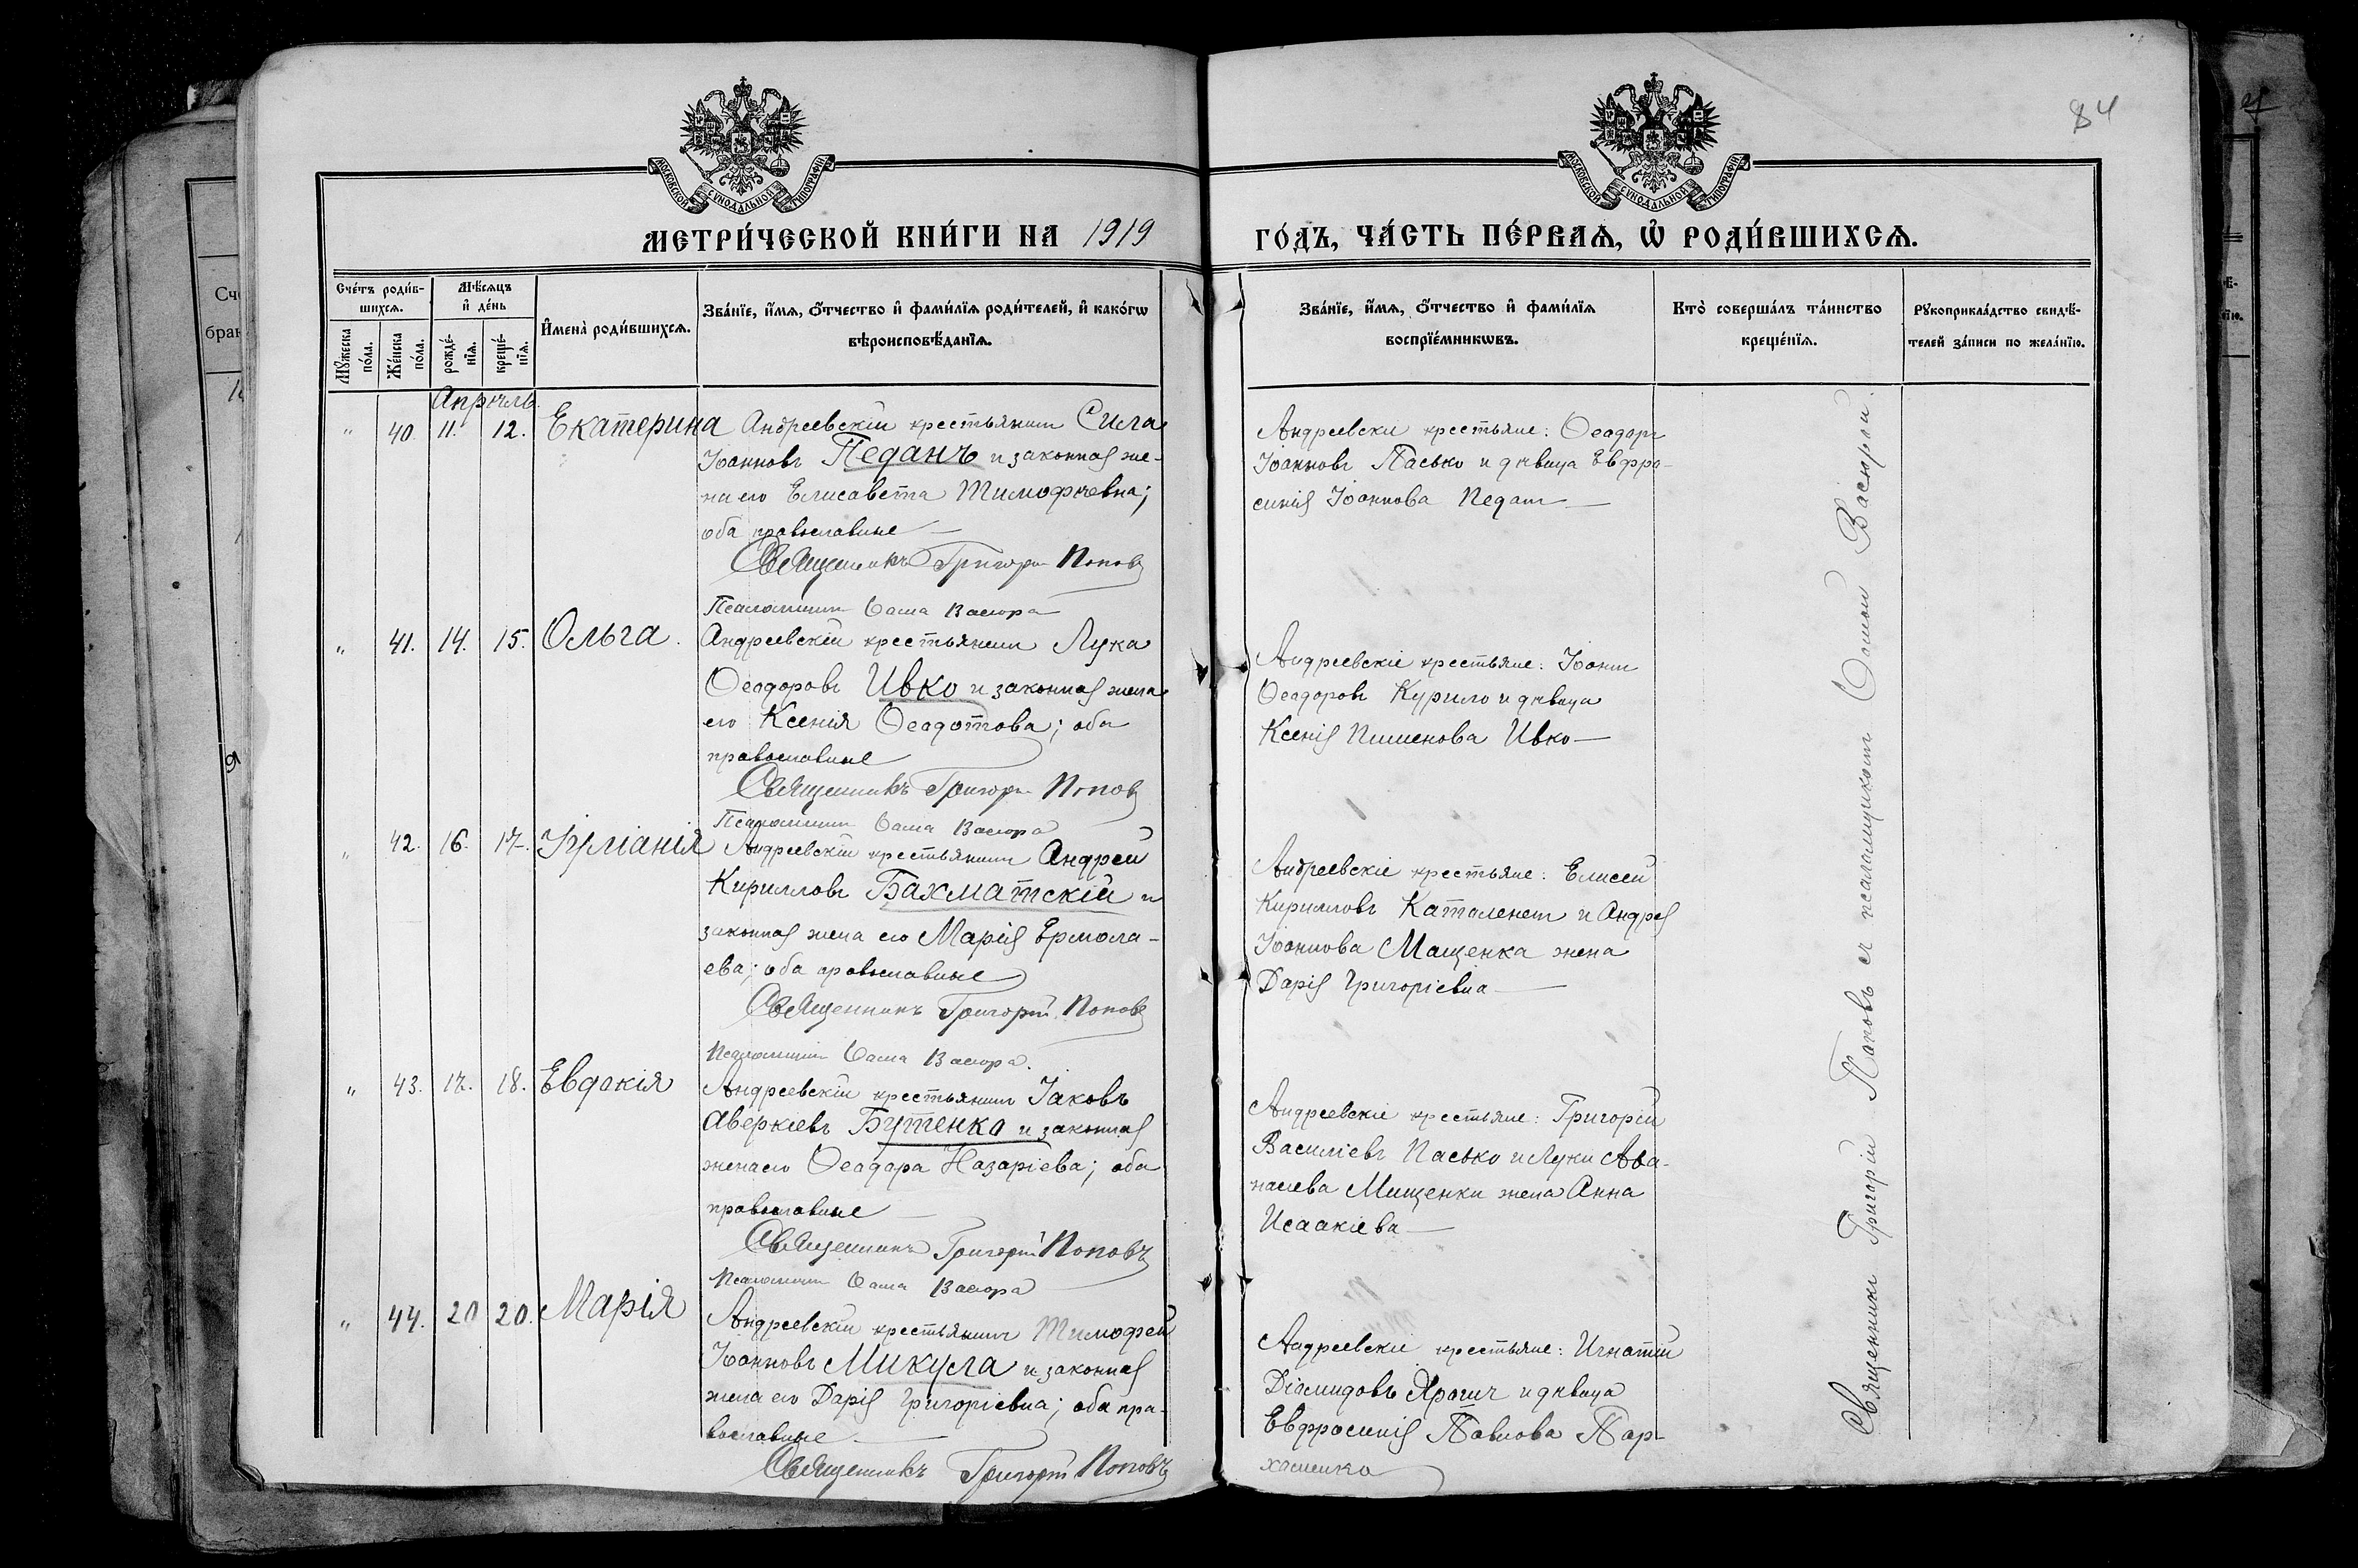 84
МОСКОВСКОЙ СУНОДАЛЬНОЙ ТИПОГРАФІИ
МОСКОВСКОЙ СУНОДАЛЬНОЙ ТИПОГРАФІИ
МЕТРИ́ЧЕСКОЙ КНИ́ГИ НА 1919
ГО́ДЪ, ЧА́СТЬ ПЕ́РВАѦ, Ѡ҆ РОДИ́ВШИХСѦ.
Сче́тъ роди́в-
шихсѧ.
Мꙋ́жеска по́ла.
Же́нска по́ла.
Мѣ́сѧцъ
и҆ де́нь
рожде́-
нїѧ.
креще́-
нїѧ.
И҆мена̀ роди́вшихсѧ.
Зва́нїе, и҆́мѧ, ѻ҆́тчество и҆ фами́лїѧ роди́телей, и҆ како́гѡ
вѣроисповѣ́данїѧ.
Зва́нїе, и҆́мѧ, ѻ҆́тчество и҆ фами́лїѧ
воспрїе́мникѡвъ.
Кто̀ соверша́лъ та́инство
креще́нїѧ.
Рꙋкоприкла́дство свидѣ́-
телей за́писи по жела́нїю.
Апрѣль.
" 40. 11. 12. Екатерина
Андреевскій крестьянинъ Сила
Іоанновъ Педанъ и законная же-
на его Елисавета Тимофѣевна;
оба православные
Священникъ Григорій Поповъ
Псаломщикъ
Андреевскіе крестьяне: Ѳеодоръ
Іоанновъ Пасько и дѣвица Евфро-
синія Іоаннова Педанъ
" 41. 14. 15. Ольга.
Андреевскій крестьянинъ Лука
Ѳеодоровъ Ивко и законная жена
его Ксенія Ѳеодотова; оба
православные
Священникъ Григорій Поповъ
Псаломщикъ
Андреевскіе крестьяне: Іоаннъ
Ѳеодоровъ Курило и дѣвица
Ксенія Пименова Ивко
" 42. 16. 17. Іуліанія
Андреевскій крестьянинъ Андрей
Кирилловъ Бахматскій и
законная жена его Марія Ермола-
ева; оба православные
Священникъ Григорій Поповъ
Псаломщикъ
Андреевскіе крестьяне: Елисей
Кирилловъ и Андрея
Іоаннова Мащенка жена
Дарія Григоріевна
" 43. 17. 18. Евдокія
Андреевскій крестьянинъ Іаковъ
Аверкіевъ Бутенко и законная
жена его Ѳеодора Назаріева; оба
православные
Священникъ Григорій Поповъ
Псаломщикъ
Андреевскіе крестьяне: Григорій
Василіевъ Пасько и Луки Аѳа-
насіева Мищенки жена Анна
Исаакіева
" 44. 20. 20. Марія
Андреевскій крестьянинъ Тимофей
Іоанновъ Микула и законная
жена его Дарія Григоріевна; оба пра-
вославные
Священникъ Григорій Поповъ
Андреевскіе крестьяне: Игнатій
Діомидовъ и дѣвица
Евфросинія Павлова Пар-
хоменко
Священникъ Григорій Поповъ съ псаломщикомъ